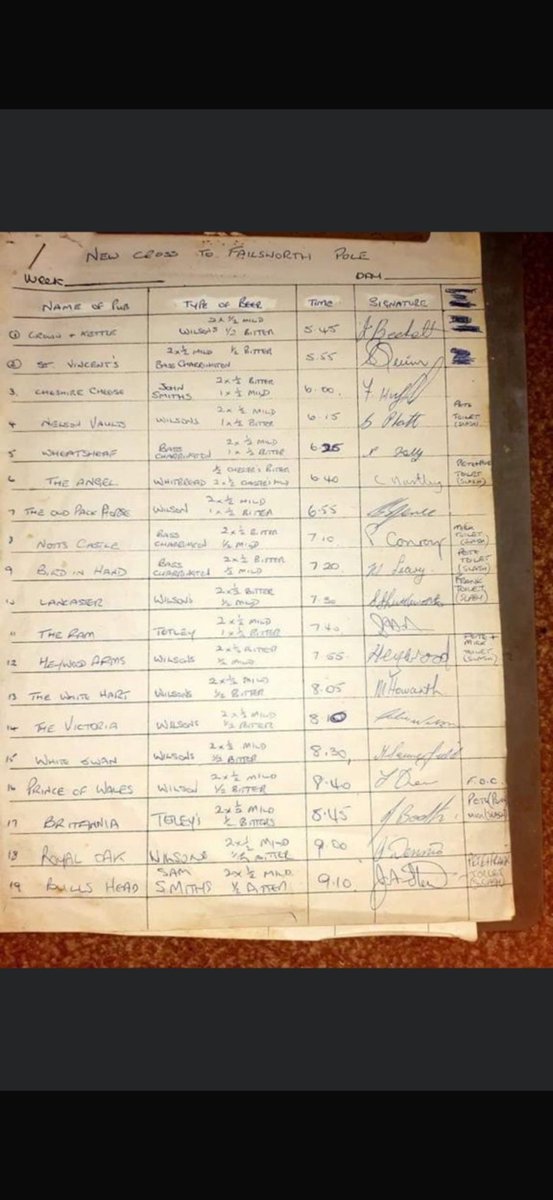 NEW CROSS TO FAILSWORTH POLE
WEEK DAY
NAME OF PUB TYPE OF BEER TIME SIGNATURE
2 x ½ MILD
① CROWN + KETTLE WILSONS ½ BITTER 5.45 Beckett
2 x ½ MILD ½ BITTER
② ST. VINCENT'S BASS CHARRINGTON 5.55
3. CHESHIRE CHEESE JOHN SMITHS 2 x ½ BITTER 1 x ½ MILD 6.00
4 NELSON VAULTS WILSONS 2 x ½ MILD 1 x ½ BITTER 6.15 Platt PETE TOILET (SLASH)
5 WHEATSHEAF BASS CHARRINGTON 2 x ½ MILD 1 x ½ BITTER 6.25
½ CHESTER'S BITER
6 THE ANGEL WHITBREAD 2 x ½ CHESTER'S MILD 6.40 TOILET (SLASH)
2 x ½ MILD
7 THE OLD PACK HORSE WILSON 1 x ½ BITTER 6.55
8 NOTTS CASTLE BASS CHARRINGTON 2 x ½ BITTER ½ MILD 7.10 P Conroy MICK TOILET (SLASH)
9 BIRD IN HAND BASS CHARRINGTON 2 x ½ BITTER ½ MILD 7.20 Leavy PETE TOILET (SLASH)
10 LANCASTER WILSONS 2 x ½ BITTER ½ MILD 7.30 Shuttleworth FRANK TOILET (SLASH)
11 THE RAM TETLEY 2 x ½ MILD 1 x ½ BITTER 7.40
12 HEYWOOD ARMS WILSONS 2 x ½ BITTER ½ MILD 7.55 Heywood PETE + MICK TOILET (SLASH)
13 THE WHITE HART WILSONS 2 x ½ MILD ½ BITTER 8.05 M Howarth
14 THE VICTORIA WILSONS 2 x ½ MILD ½ BITTER 8.10
15 WHITE SWAN WILSONS 2 x ½ MILD ½ BITTER 8.30
16 PRINCE OF WALES WILSON 2 x ½ MILD ½ BITTER 8.40 F.O.C.
17 BRITANNIA TETLEY'S 2 x ½ MILD ½ BITTERS 8.45 Booth
18 ROYAL OAK WILSONS 2 x ½ MILD ½ BITTER 9.00
19 BULLS HEAD SAM SMITHS 2 x ½ MILD ½ BITTER 9.10 TOILET (SLASH)